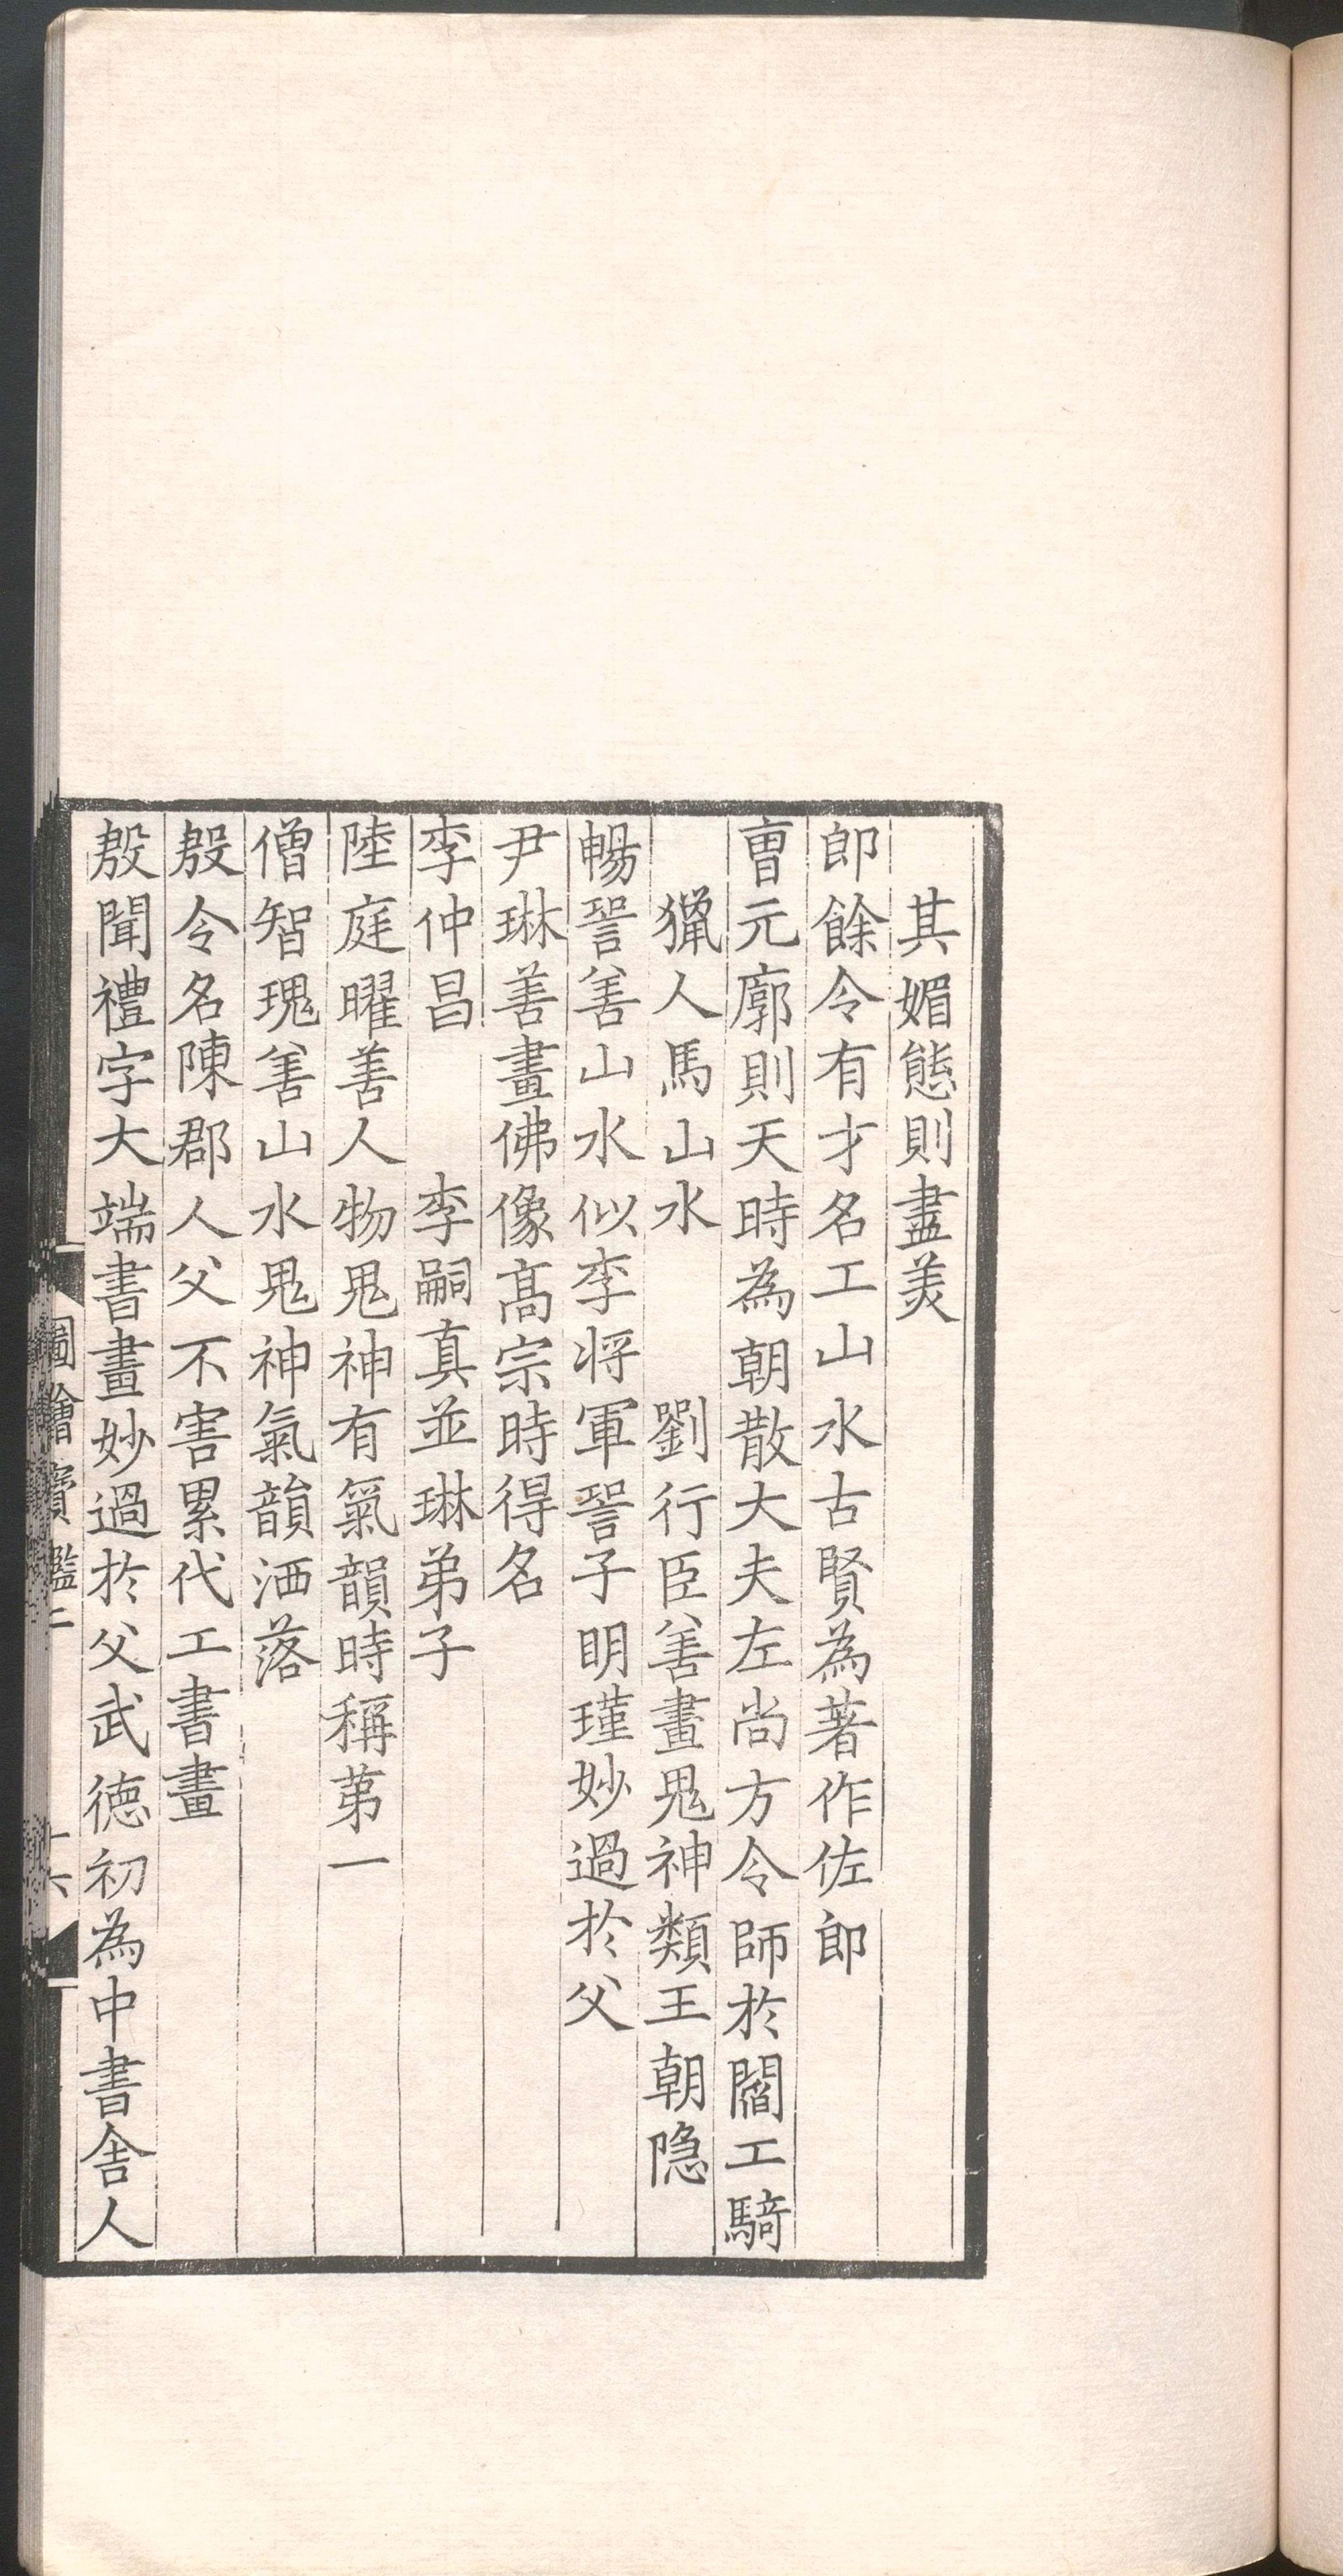 其媚態則盡美
郎餘令有才名工山水古賢為著作佐郎
曹元廓則天時為朝散大夫左尚方令師於閻工騎
獵人馬山水　劉行臣善畫鬼神類王朝隱
暢詧善山水似李将軍詧子明瑾妙過於父
尹琳善畫佛像高宗時得名
李仲昌　李嗣真並琳弟子
陸庭曜善人物鬼神有氣韻時稱苐一
僧智瑰善山水鬼神氣韻洒落
殷令名陳郡人父不害累代工書畫
殷聞禮字大端書畫妙過於父武德初為中書舍人
圖繪寶鑑二
十六